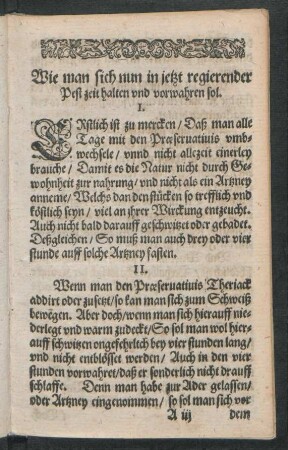 Wie man sich nun in jetzt regierender
Pest zeit halten vnd vorwahren sol.
I.
ERstlich ist zu mercken / Daß man alle
Tage mit den Præseruatiuis vmb-
wechsele / vnnd nicht allezeit einerley
brauche / Damit es die Natur nicht durch Ge-
wohnheit zur nahrung / vnd nicht als ein Artzney
anneme / Welchs dan den stücken so trefflich vnd
köstlich seyn / viel an jhrer Wirckung entzeucht.
Auch nicht bald darauff geschwitzet oder gebadet.
Deßgleichen / So muß man auch drey oder vier
stunde auff solche Artzney fasten.
II.
Wenn man den Præseruatiuis Theriack
addirt oder zusetzt / so kan man sich zum Schweiß
bewegen. Aber doch / wenn man sich hierauff nie-
derlegt vnd warm zudeckt / So sol man wol hier-
auff schwitzen ongefehrlich bey vier stunden lang /
vnd nicht entblösset werden / Auch in den vier
stunden vorwahret / daß er sonderlich nicht drauff
schlaffe. Denn man habe zur Ader gelassen /
oder Artzney eingenommen / so sol man sich vor
A iij dem